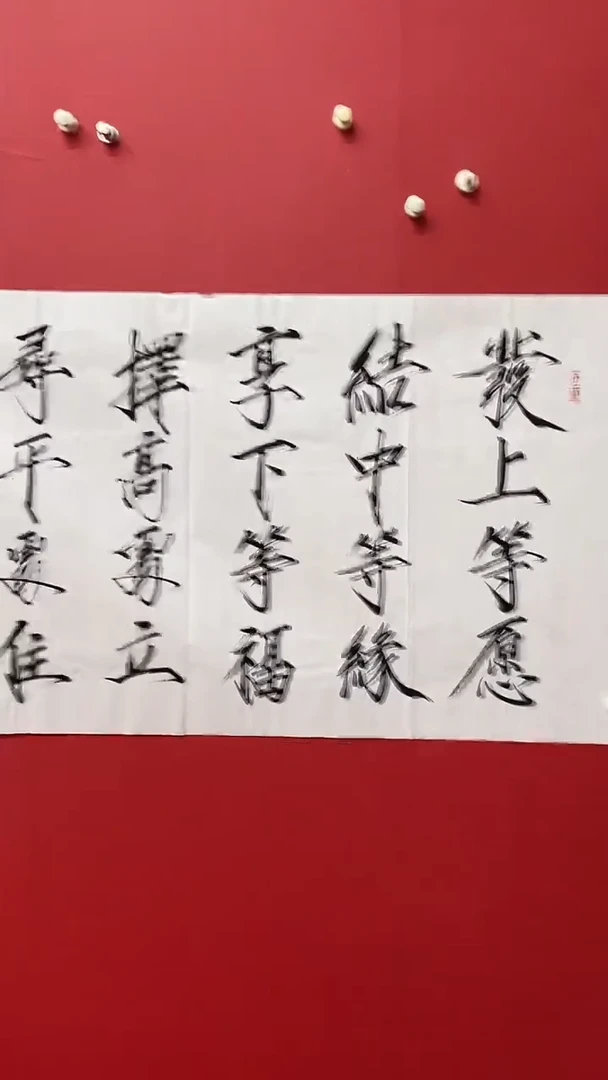 發上等愿
結中等緣
享下等福
擇高處立
尋平處住